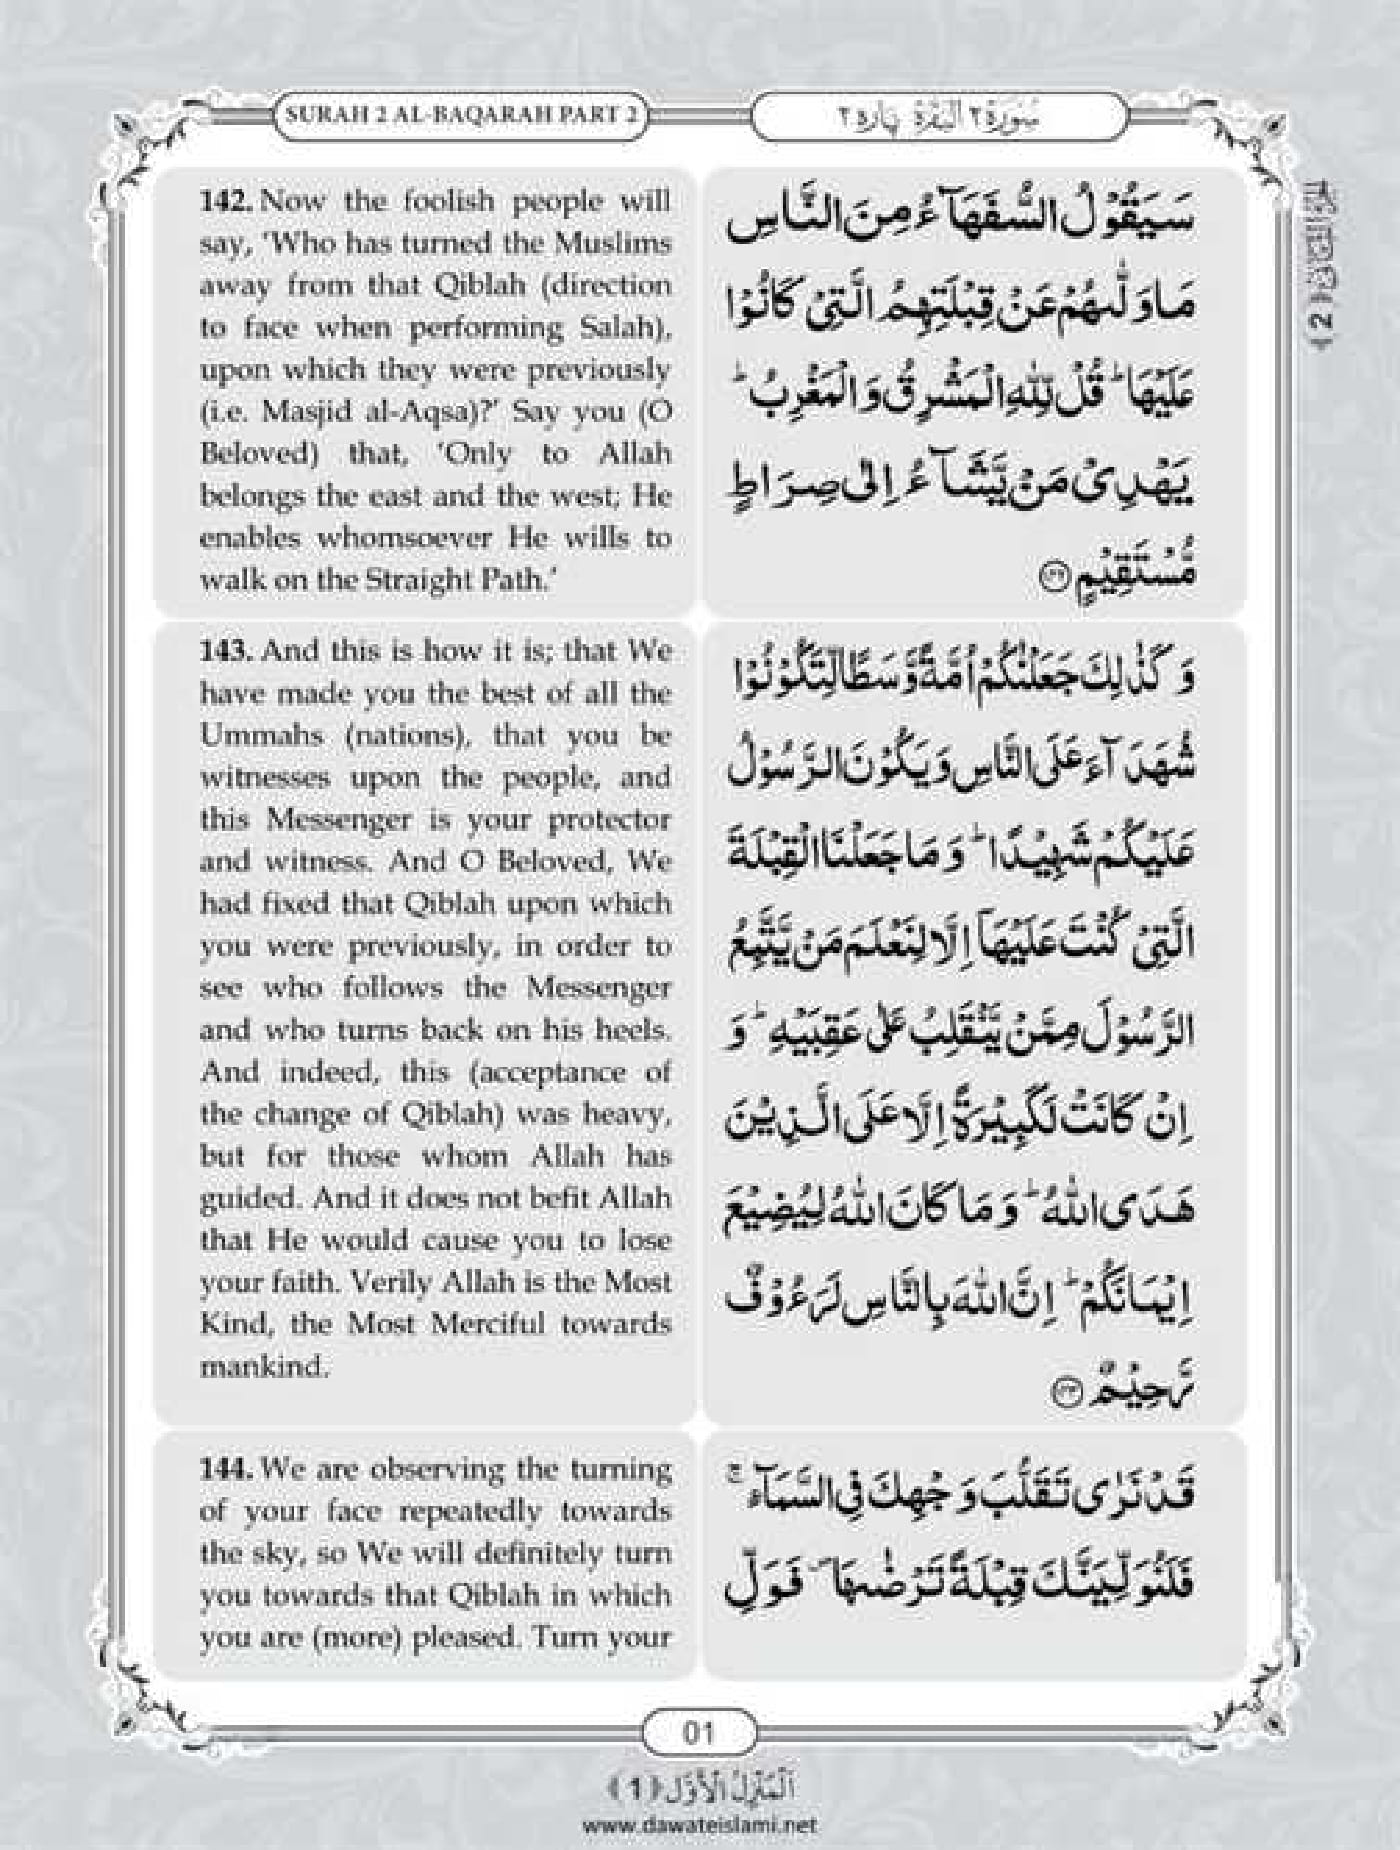 SURAH 2 AL-BAQARAH PART 2
سُوْرَة ٢ اَلْبَقَرَة پارہ ٢
142. Now the foolish people will
say, ‘Who has turned the Muslims
away from that Qiblah (direction
to face when performing Salah),
upon which they were previously
(i.e. Masjid al-Aqsa)?’ Say you (O
Beloved) that, ‘Only to Allah
belongs the east and the west; He
enables whomsoever He wills to
walk on the Straight Path.’
سَيَقُوْلُ السُّفَهَآءُ مِنَ النَّاسِ
مَا وَلّٰىهُمْ عَنْ قِبْلَتِهِمُ الَّتِيْ كَانُوْا
عَلَيْهَا ؕ قُلْ لِّلّٰهِ الْمَشْرِقُ وَالْمَغْرِبُ ؕ
يَهْدِيْ مَنْ يَّشَآءُ اِلٰى صِرَاطٍ
مُّسْتَقِيْمٍ ﴿۱۴۲﴾
143. And this is how it is; that We
have made you the best of all the
Ummahs (nations), that you be
witnesses upon the people, and
this Messenger is your protector
and witness. And O Beloved, We
had fixed that Qiblah upon which
you were previously, in order to
see who follows the Messenger
and who turns back on his heels.
And indeed, this (acceptance of
the change of Qiblah) was heavy,
but for those whom Allah has
guided. And it does not befit Allah
that He would cause you to lose
your faith. Verily Allah is the Most
Kind, the Most Merciful towards
mankind.
وَ كَذٰلِكَ جَعَلْنٰكُمْ اُمَّةً وَّسَطًا لِّتَكُوْنُوْا
شُهَدَآءَ عَلَى النَّاسِ وَيَكُوْنَ الرَّسُوْلُ
عَلَيْكُمْ شَهِيْدًا ؕ وَ مَا جَعَلْنَا الْقِبْلَةَ
الَّتِيْ كُنْتَ عَلَيْهَاۤ اِلَّا لِنَعْلَمَ مَنْ يَّتَّبِعُ
الرَّسُوْلَ مِمَّنْ يَّنْقَلِبُ عَلٰى عَقِبَيْهِ ؕ وَ
اِنْ كَانَتْ لَكَبِيْرَةً اِلَّا عَلَى الَّذِيْنَ
هَدَى اللّٰهُ ؕ وَ مَا كَانَ اللّٰهُ لِيُضِيْعَ
اِيْمَانَكُمْ ؕ اِنَّ اللّٰهَ بِالنَّاسِ لَرَءُوْفٌ
رَّحِيْمٌ ﴿۱۴۳﴾
144. We are observing the turning
of your face repeatedly towards
the sky, so We will definitely turn
you towards that Qiblah in which
you are (more) pleased. Turn your
قَدْ نَرٰى تَقَلُّبَ وَجْهِكَ فِي السَّمَآءِ ۚ
فَلَنُوَلِّيَنَّكَ قِبْلَةً تَرْضٰىهَا ۪ فَوَلِّ
اَلْجُزْءُ الثَّانِيْ ﴿2﴾
01
اَلْمَنْزِلُ الْاَوَّل ﴿1﴾
www.dawateislami.net